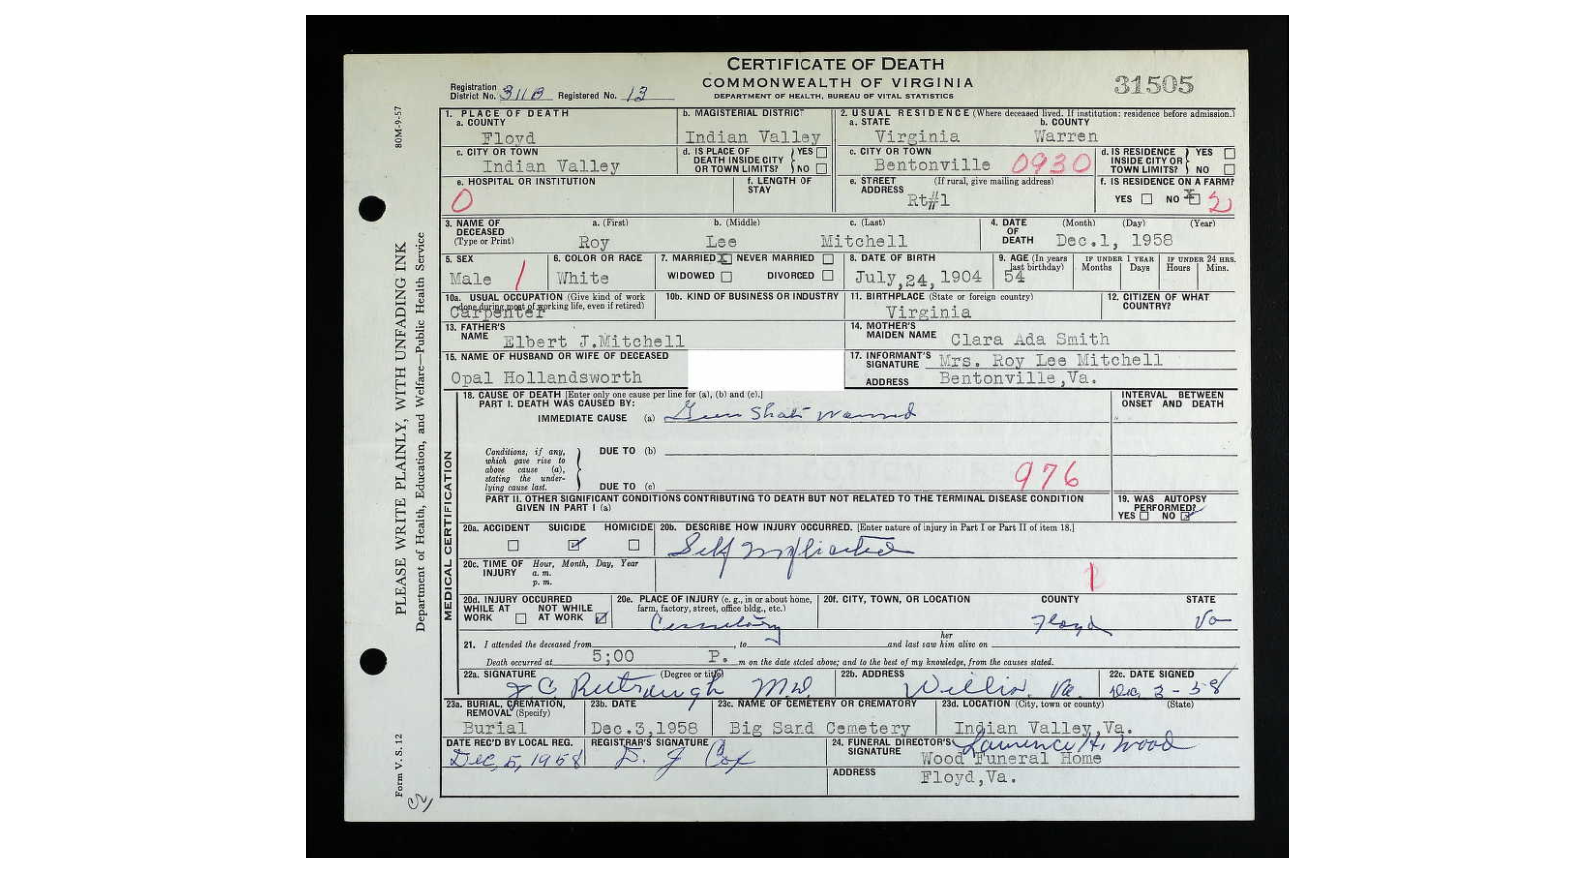 CERTIFICATE OF DEATH
COMMONWEALTH OF VIRGINIA
DEPARTMENT OF HEALTH, BUREAU OF VITAL STATISTICS
31505
Registration District No. 311B Registered No. 13
80M-9-57
PLEASE WRITE PLAINLY, WITH UNFADING INK
Department of Health, Education, and Welfare—Public Health Service
Form V. S. 12
1. PLACE OF DEATH
a. COUNTY
Floyd
b. MAGISTERIAL DISTRICT
Indian Valley
2. USUAL RESIDENCE (Where deceased lived. If institution: residence before admission.)
a. STATE
Virginia
b. COUNTY
Warren
c. CITY OR TOWN
Indian Valley
d. IS PLACE OF DEATH INSIDE CITY OR TOWN LIMITS? YES NO
c. CITY OR TOWN
Bentonville 0930
d. IS RESIDENCE INSIDE CITY OR TOWN LIMITS? YES NO
e. HOSPITAL OR INSTITUTION
0
f. LENGTH OF STAY
e. STREET ADDRESS (If rural, give mailing address)
Rt#1
f. IS RESIDENCE ON A FARM?
YES NO X 2
3. NAME OF DECEASED (Type or Print)
a. (First) b. (Middle) c. (Last)
Roy Lee Mitchell
4. DATE OF DEATH (Month) (Day) (Year)
Dec.1, 1958
5. SEX
Male 1
6. COLOR OR RACE
White
7. MARRIED X NEVER MARRIED
WIDOWED DIVORCED
8. DATE OF BIRTH
July,24,1904
9. AGE (In years last birthday)
54
IF UNDER 1 YEAR Months Days
IF UNDER 24 HRS. Hours Mins.
10a. USUAL OCCUPATION (Give kind of work done during most of working life, even if retired)
Carpenter
10b. KIND OF BUSINESS OR INDUSTRY
11. BIRTHPLACE (State or foreign country)
Virginia
12. CITIZEN OF WHAT COUNTRY?
13. FATHER'S NAME
Elbert J.Mitchell
14. MOTHER'S MAIDEN NAME
Clara Ada Smith
15. NAME OF HUSBAND OR WIFE OF DECEASED
Opal Hollandsworth
17. INFORMANT'S SIGNATURE Mrs. Roy Lee Mitchell
ADDRESS Bentonville,Va.
MEDICAL CERTIFICATION
18. CAUSE OF DEATH [Enter only one cause per line for (a), (b) and (c).]
PART I. DEATH WAS CAUSED BY:
IMMEDIATE CAUSE (a) Gun Shot Wound
INTERVAL BETWEEN ONSET AND DEATH
Conditions, if any, which gave rise to above cause (a), stating the underlying cause last.
DUE TO (b)
DUE TO (c)
976
PART II. OTHER SIGNIFICANT CONDITIONS CONTRIBUTING TO DEATH BUT NOT RELATED TO THE TERMINAL DISEASE CONDITION GIVEN IN PART I (a)
19. WAS AUTOPSY PERFORMED?
YES NO
20a. ACCIDENT SUICIDE HOMICIDE
20b. DESCRIBE HOW INJURY OCCURRED. [Enter nature of injury in Part I or Part II of item 18.]
Self Inflicted
20c. TIME OF INJURY Hour, Month, Day, Year
a. m.
p. m.
1
20d. INJURY OCCURRED
WHILE AT WORK NOT WHILE AT WORK
20e. PLACE OF INJURY (e. g., in or about home, farm, factory, street, office bldg., etc.)
Cemetery
20f. CITY, TOWN, OR LOCATION COUNTY STATE
Floyd Va
21. I attended the deceased from , to and last saw her him alive on
Death occurred at 5;00 P. m on the date stated above; and to the best of my knowledge, from the causes stated.
22a. SIGNATURE (Degree or title)
M.D.
22b. ADDRESS
Willis. Va.
22c. DATE SIGNED
Dec, 3-58
23a. BURIAL, CREMATION, REMOVAL (Specify)
Burial
23b. DATE
Dec.3,1958
23c. NAME OF CEMETERY OR CREMATORY
Big Sand Cemetery
23d. LOCATION (City, town or county) (State)
Indian Valley,Va.
DATE REC'D BY LOCAL REG.
Dec, 5, 1958
REGISTRAR'S SIGNATURE
Cox
24. FUNERAL DIRECTOR'S SIGNATURE
Laurence H. Wood
Wood Funeral Home
ADDRESS
Floyd,Va.